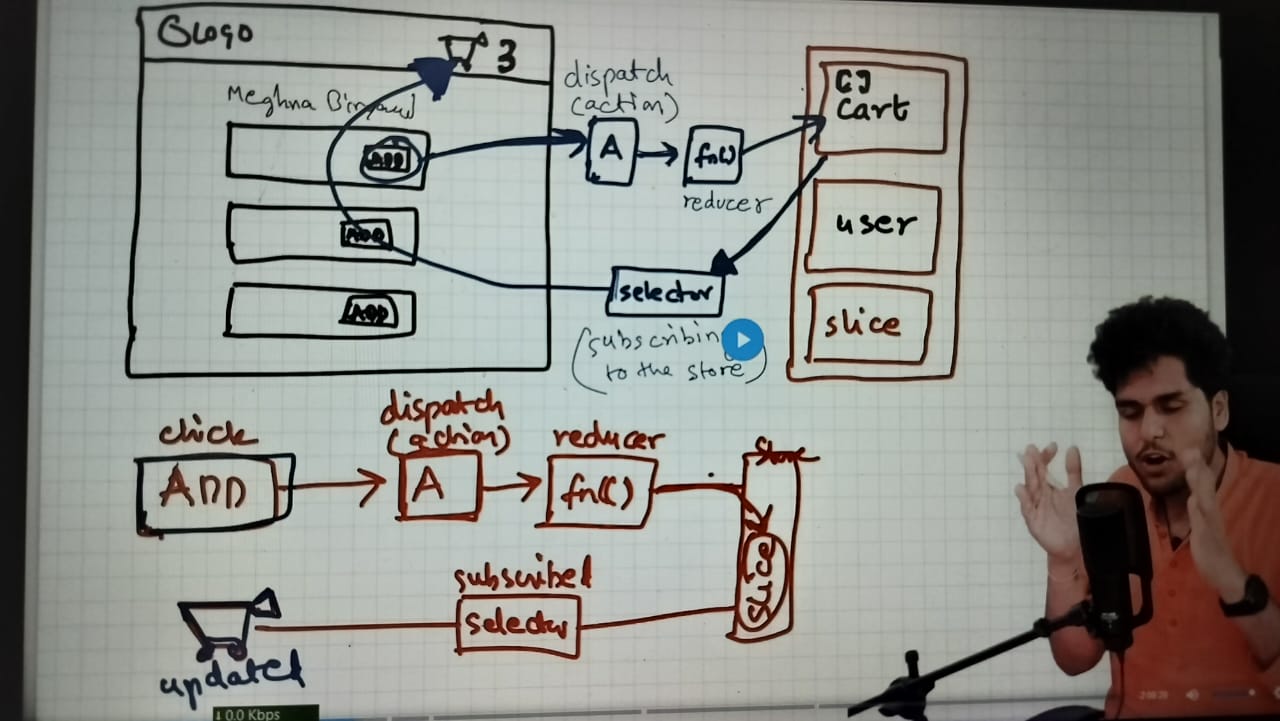 Logo
3
Meghna Biryani
ADD
ADD
ADD
dispatch
(action)
A
fn()
reducer
[]
Cart
user
slice
selector
(subscribin
to the store)
click
ADD
dispatch
(action)
A
reducer
fn()
Store
slice
subscribed
selector
updated
2:08:28
↓ 0.0 Kbps